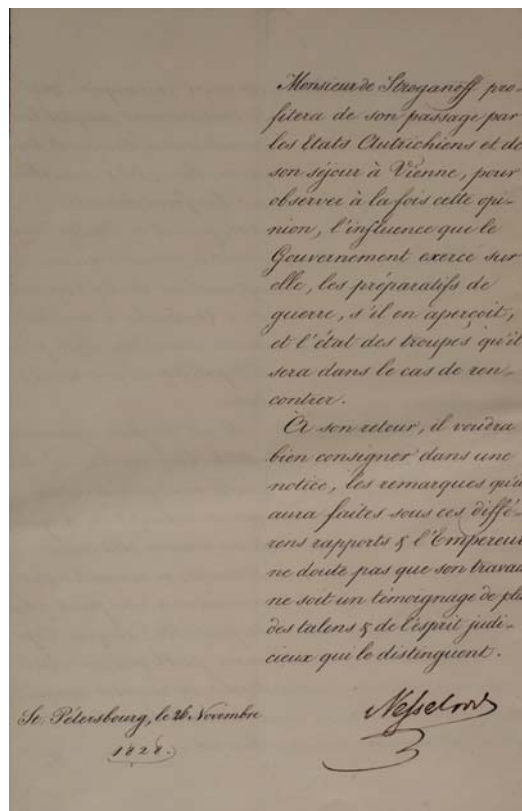 Monsieur de Stroganoff pro-
fitera de son passage par
les Etats Autrichiens et de
son séjour à Vienne, pour
observer à la fois cette opi-
nion, l'influence que le
Gouvernement exerce sur
elle, les préparatifs de
guerre, s'il en aperçoit,
et l'état des troupes qu'il
sera dans le cas de ren-
contrer.
A son retour, il voudra
bien consigner dans une
notice, les remarques qu'il
aura faites sous ces diffé-
rens rapports & l'Empereur
ne doute pas que son travail
ne soit un témoignage de plus
des talens & de l'esprit judi-
cieux qui le distinguent.
St. Pétersbourg, le 26 Novembre
1828.
Nesselrode